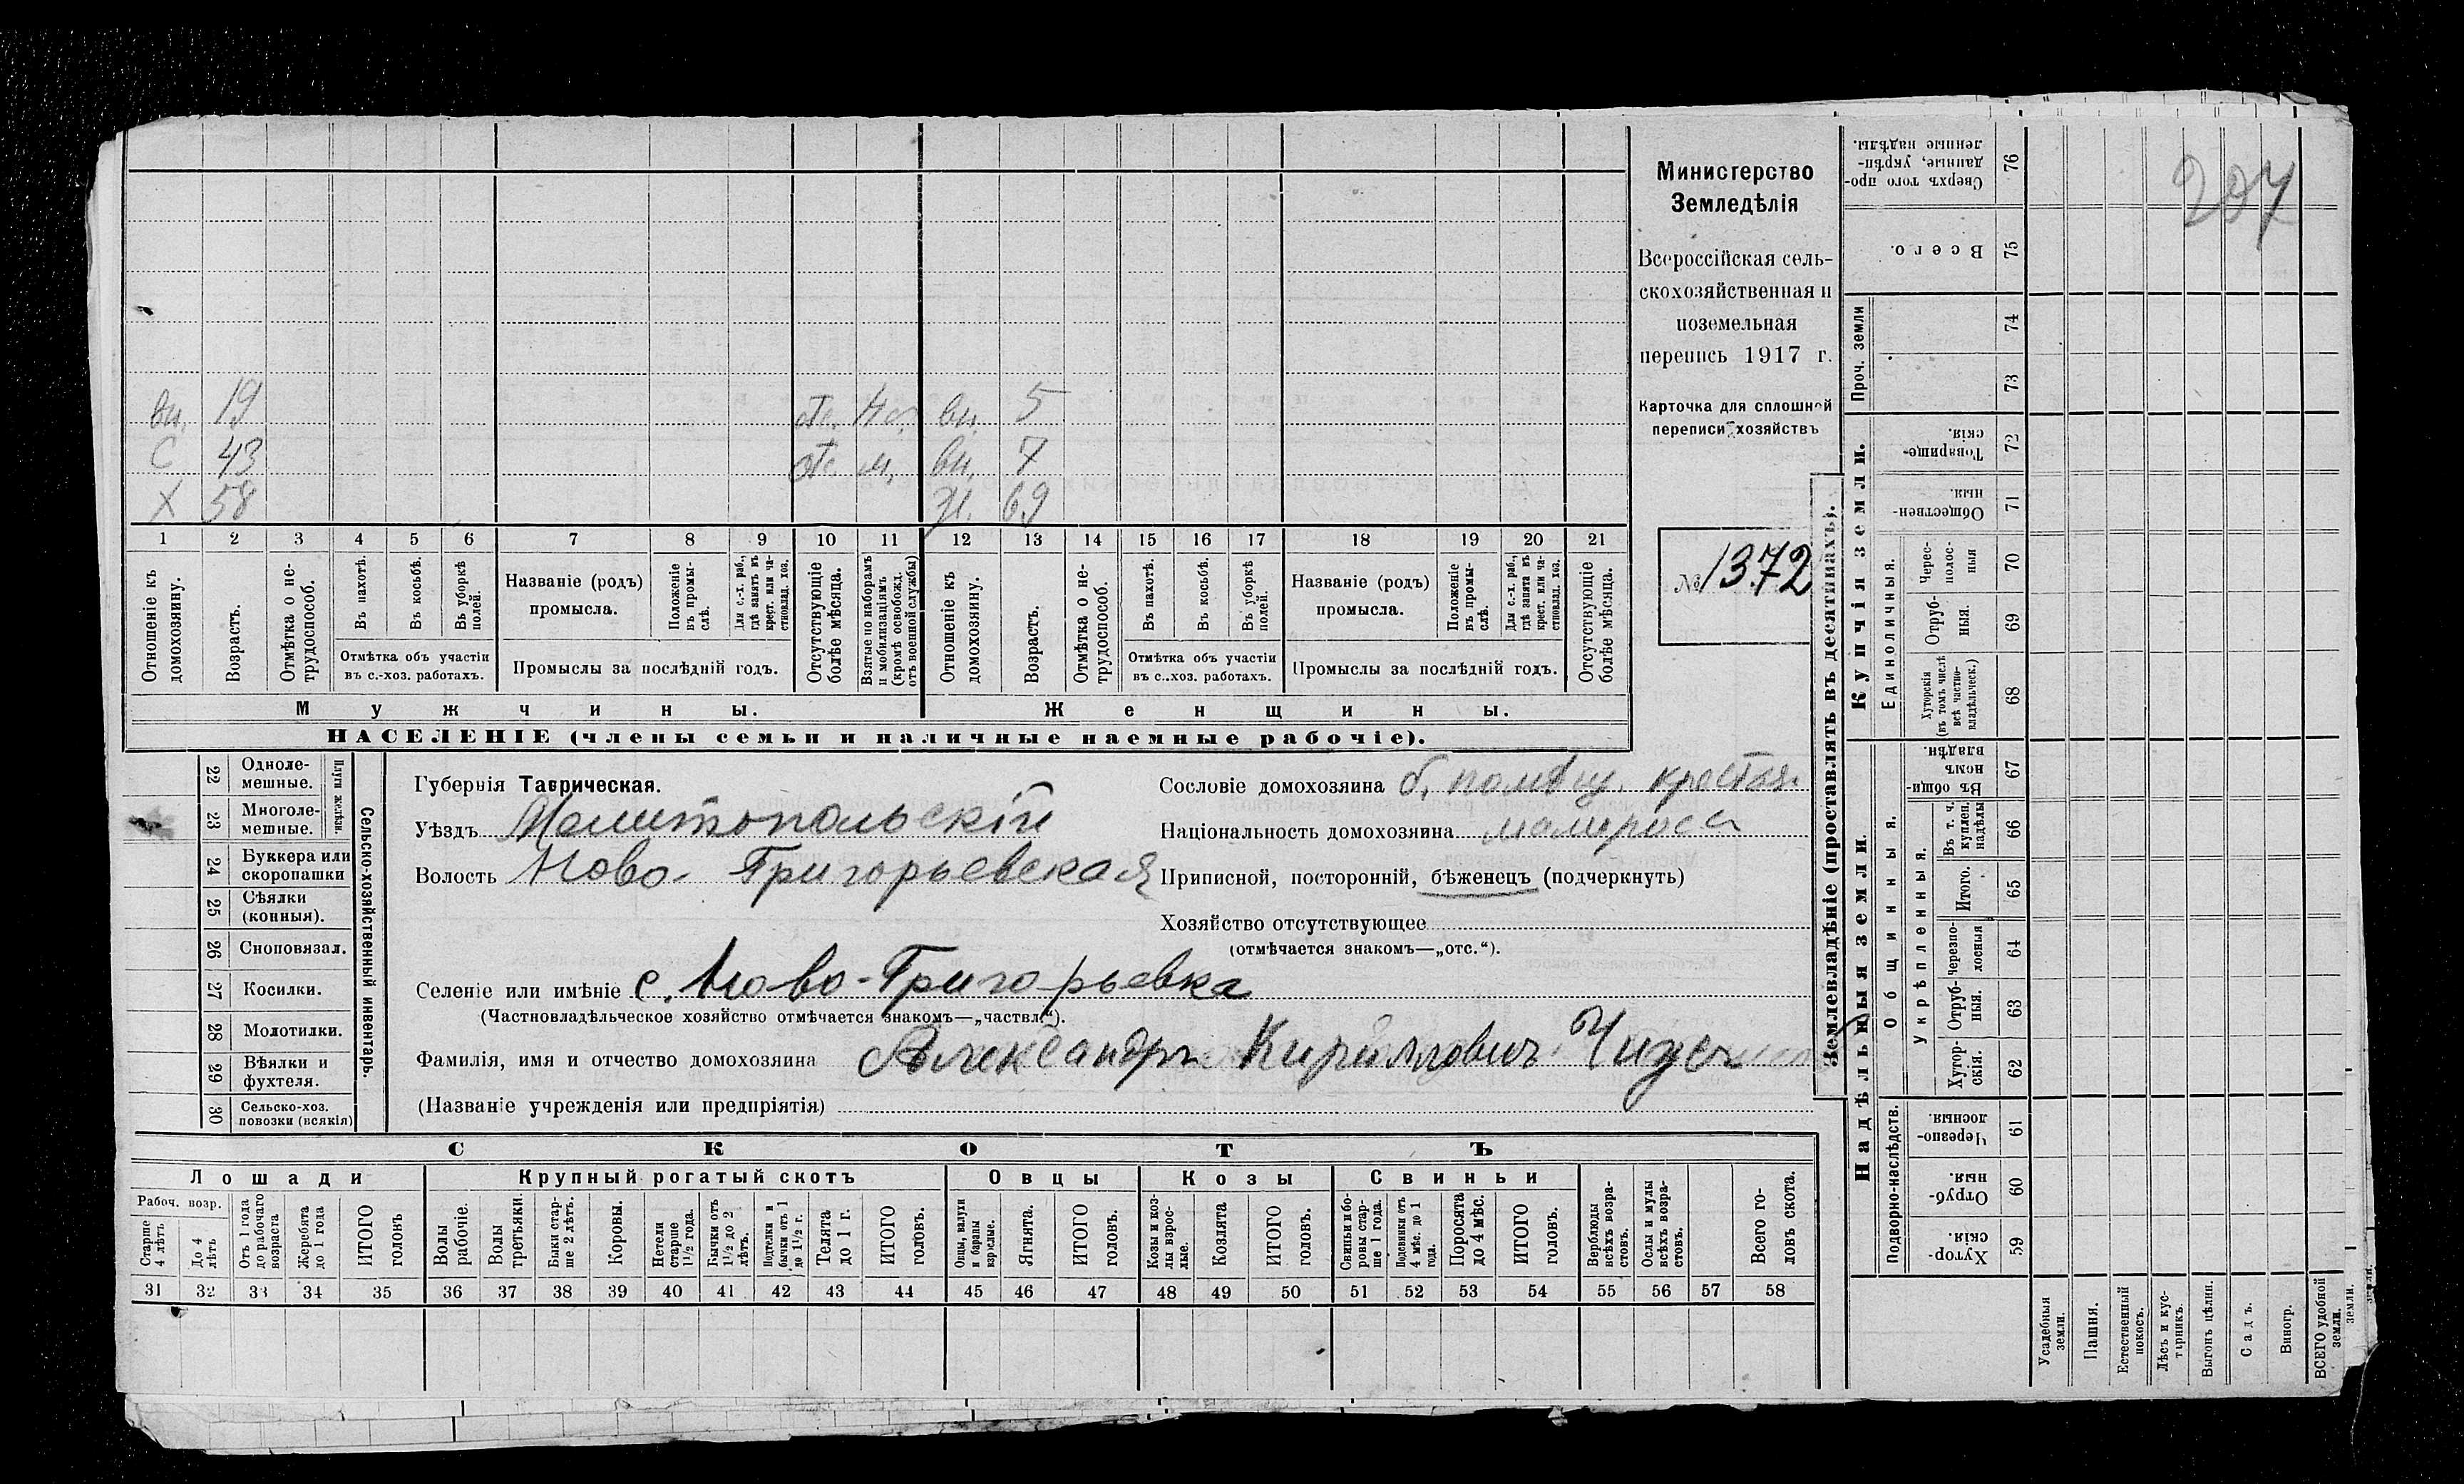 297
Министерство
Земледѣлія
Всероссійская сель-
скохозяйственная и
поземельная
перепись 1917 г.
Карточка для сплошной
переписи хозяйствъ
№ 1372
вн. 19 от. вн. 5
С 43 от м, вн. 7
Х 58 ж. 69
1 2 3 4 5 6 7 8 9 10 11 12 13 14 15 16 17 18 19 20 21
Отношеніе къ домохозяину.
Возрастъ.
Отмѣтка о не-трудоспособ.
Въ пахотѣ.
Въ косьбѣ.
Въ уборкѣ полей.
Отмѣтка объ участіи
въ с.-хоз. работахъ.
Названіе (родъ)
промысла.
Положеніе въ промы-слѣ.
Для с.-х. раб., гдѣ занятъ въ крест. или ча-стновлад. хоз.
Промыслы за послѣдній годъ.
Отсутствующіе болѣе мѣсяца.
Взятые по наборамъ и мобилизаціямъ (кромѣ освобожд. отъ военной службы)
Отношеніе къ домохозяину.
Возрастъ.
Отмѣтка о не-трудоспособ.
Въ пахотѣ.
Въ косьбѣ.
Въ уборкѣ полей.
Отмѣтка объ участіи
въ с.-хоз. работахъ.
Названіе (родъ)
промысла.
Положеніе въ промы-слѣ.
Для с.-х. раб., гдѣ занята въ крест. или ча-стновлад. хоз.
Промыслы за послѣдній годъ.
Отсутствующіе болѣе мѣсяца.
Мужчины. Женщины.
НАСЕЛЕНІЕ (члены семьи и наличные наемные рабочіе).
Сельско-хозяйственный инвентарь.
Плуги желѣзн.
22 Одноле-мешные.
23 Многоле-мешные.
24 Буккера или скоропашки
25 Сѣялки (конныя).
26 Сноповязал.
27 Косилки.
28 Молотилки.
29 Вѣялки и фухтеля.
30 Сельско-хоз. повозки (всякія)
Губернія Таврическая.
Уѣздъ Мелитопольскій
Волость Ново-Григорьевская
Сословіе домохозяина б. помѣщ. крестья.
Національность домохозяина малоросс
Приписной, посторонній, бѣженецъ (подчеркнуть)
Хозяйство отсутствующее
(отмѣчается знакомъ—„отс.“).
Селеніе или имѣніе с. Ново-Григорьевка
(Частновладѣльческое хозяйство отмѣчается знакомъ—„частвл.“).
Фамилія, имя и отчество домохозяина Александръ Кириллович
(Названіе учрежденія или предпріятія)
СКОТЪ
Лошади Крупный рогатый скотъ Овцы Козы Свиньи
Рабоч. возр.
Старше 4 лѣтъ
До 4 лѣтъ
Отъ 1 года до рабочаго возраста
Жеребята до 1 года
ИТОГО головъ
Волы рабочіе.
Волы третьяки.
Быки стар-ше 2 лѣтъ.
Коровы.
Нетели старше 1½ года.
Бычки отъ 1½ до 2 лѣтъ.
Подтелки и бычки отъ 1 до 1½ г.
Телята до 1 г.
ИТОГО головъ.
Овцы, валухи и бараны взрослые.
Ягнята.
ИТОГО головъ.
Козы и коз-лы взрос-лые.
Козлята
ИТОГО головъ.
Свиньи и бо-ровы стар-ше 1 года.
Подсвинки отъ 4 мѣс. до 1 года.
Поросята до 4 мѣс.
ИТОГО головъ.
Верблюды всѣхъ возра-стовъ.
Ослы и мулы всѣхъ возра-стовъ.
Всего го-ловъ скота.
31 32 33 34 35 36 37 38 39 40 41 42 43 44 45 46 47 48 49 50 51 52 53 54 55 56 57 58
Землевладѣніе (проставлять въ десятинахъ).
Надѣльныя земли.
Купчія земли.
Проч. земли
Подворно-наслѣдств.
Общинныя.
Укрѣпленныя.
Единоличныя.
Хутор-скія. 59
Отруб-ныя. 60
Черезпо-лосныя 61
Хутор-скія. 62
Отруб-ныя. 63
Черезпо-лосныя 64
Итого. 65
Въ т. ч. куплен. надѣлы 66
Въ общи-номъ владѣн. 67
Хуторскія (въ томъ числѣ всѣ частно-владѣльческ.) 68
Отруб-ныя. 69
Черес-полос-ныя 70
Обществен-ныя 71
Товарище-скія. 72
73
74
Всего. 75
Сверхъ того про-данные, укрѣп-ленные надѣлы. 76
Усадебныя земли.
Пашня.
Естественный покосъ.
Лѣсъ и кус-тарникъ.
Выгонъ цѣлин.
Садъ.
Виногр.
ВСЕГО удобной земли.
земли.